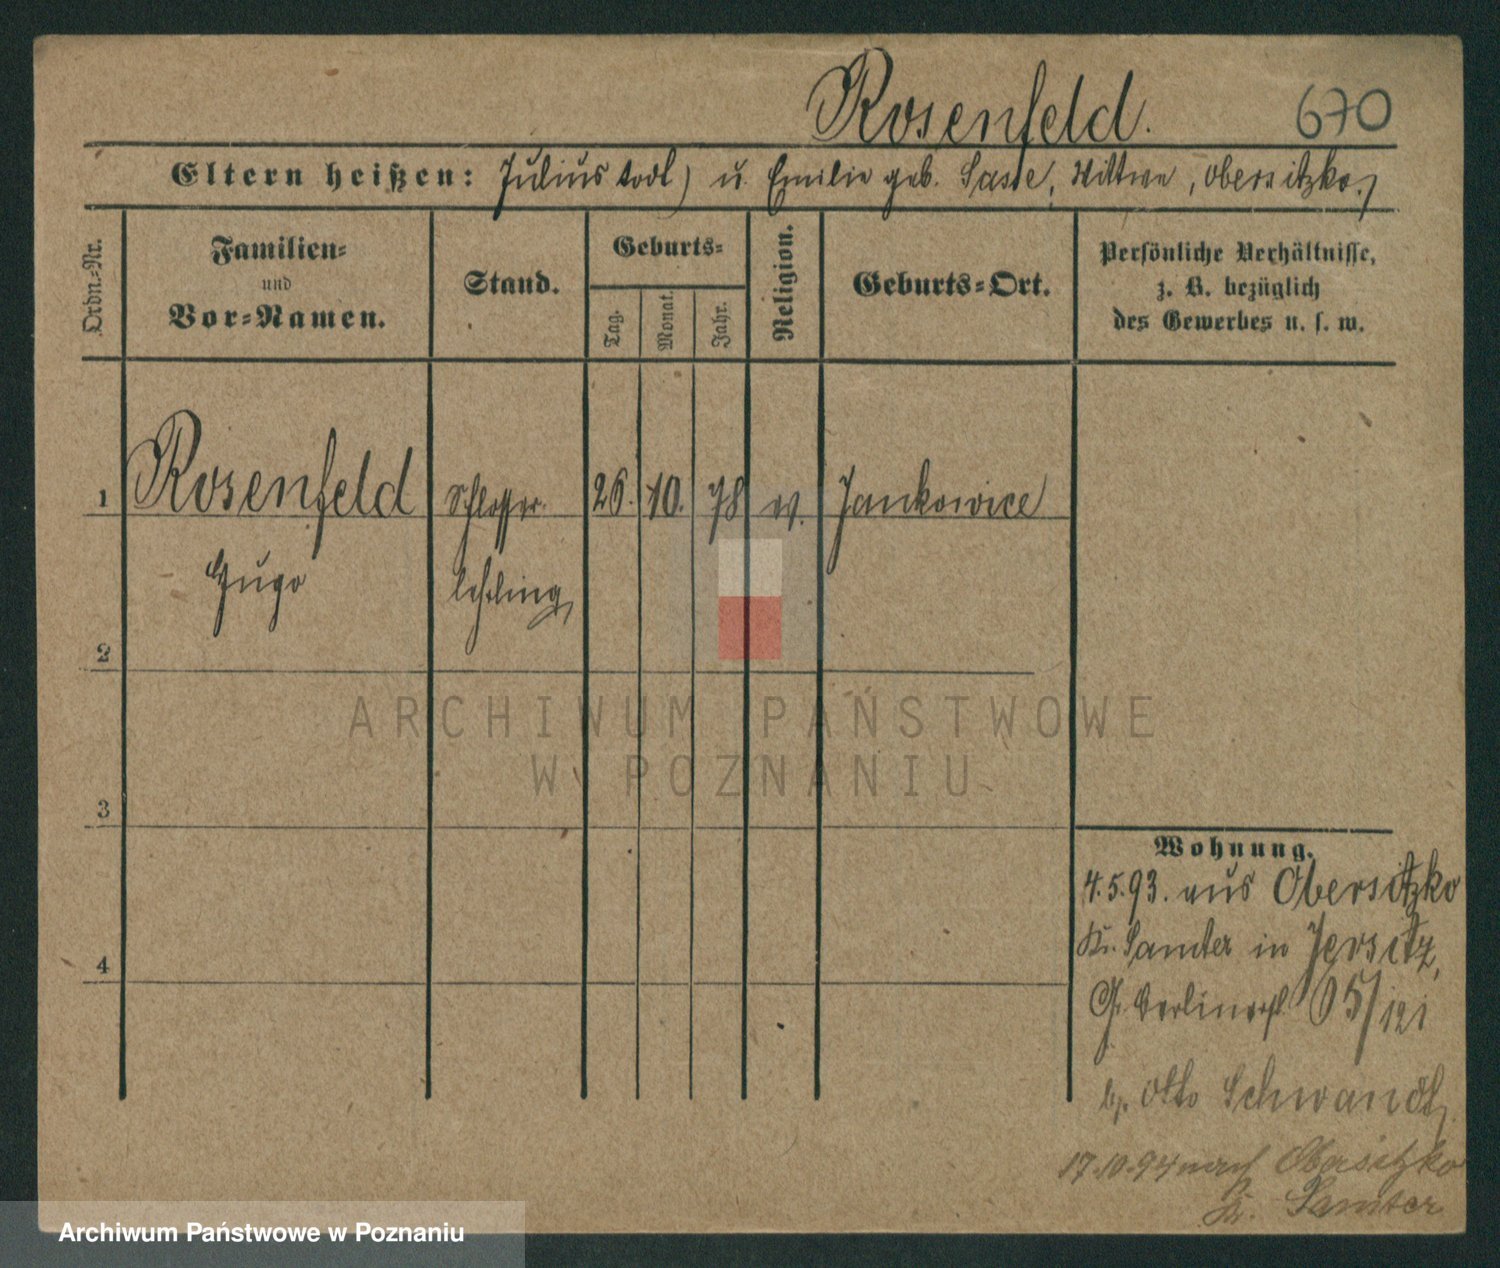 Rosenfeld. 670
Eltern heißen: Julius todt) u. Emilie geb. Sasse, Wittwe, Obersitzko.)
Ordn.-Nr.
Familien-
und
Vor-Namen.
Stand.
Geburts-
Tag.
Monat.
Jahr.
Religion.
Geburts-Ort.
Persönliche Verhältnisse,
z. B. bezüglich
des Gewerbes u. s. w.
1 Rosenfeld Schlosser 26. 10. 78 ev. Jankowice
Hugo lehrling
2
3
4
Wohnung.
4.5.93. aus Obersitzko
Kr. Samter in Jersitz,
Gr. Berlinerst.
b. Otto Schwandt
17.10.94 nach Obersitzko
Kr. Samter
ARCHIWUM PAŃSTWOWE
W POZNANIU
Archiwum Państwowe w Poznaniu